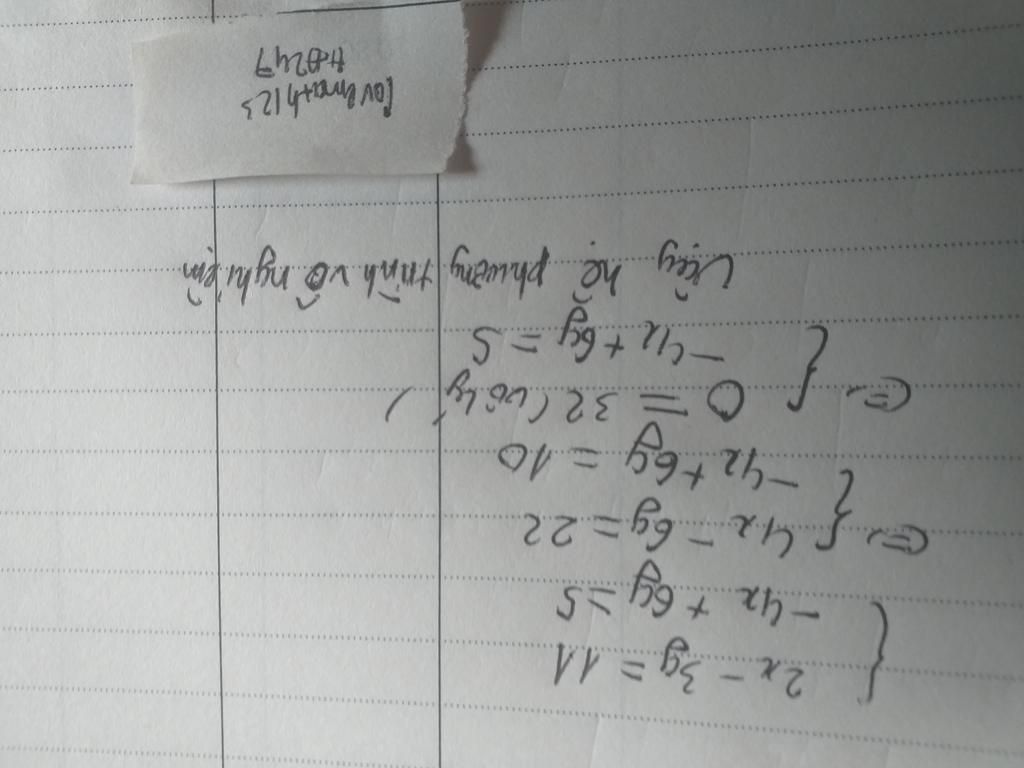 2x - 3y = 11
-4x + 6y = 5
<=> 4x - 6y = 22
-4x + 6y = 10
<=> 0 = 32 (vô lý)
-4x + 6y = 5
Vậy hệ phương trình vô nghiệm
lovemath123
#0247